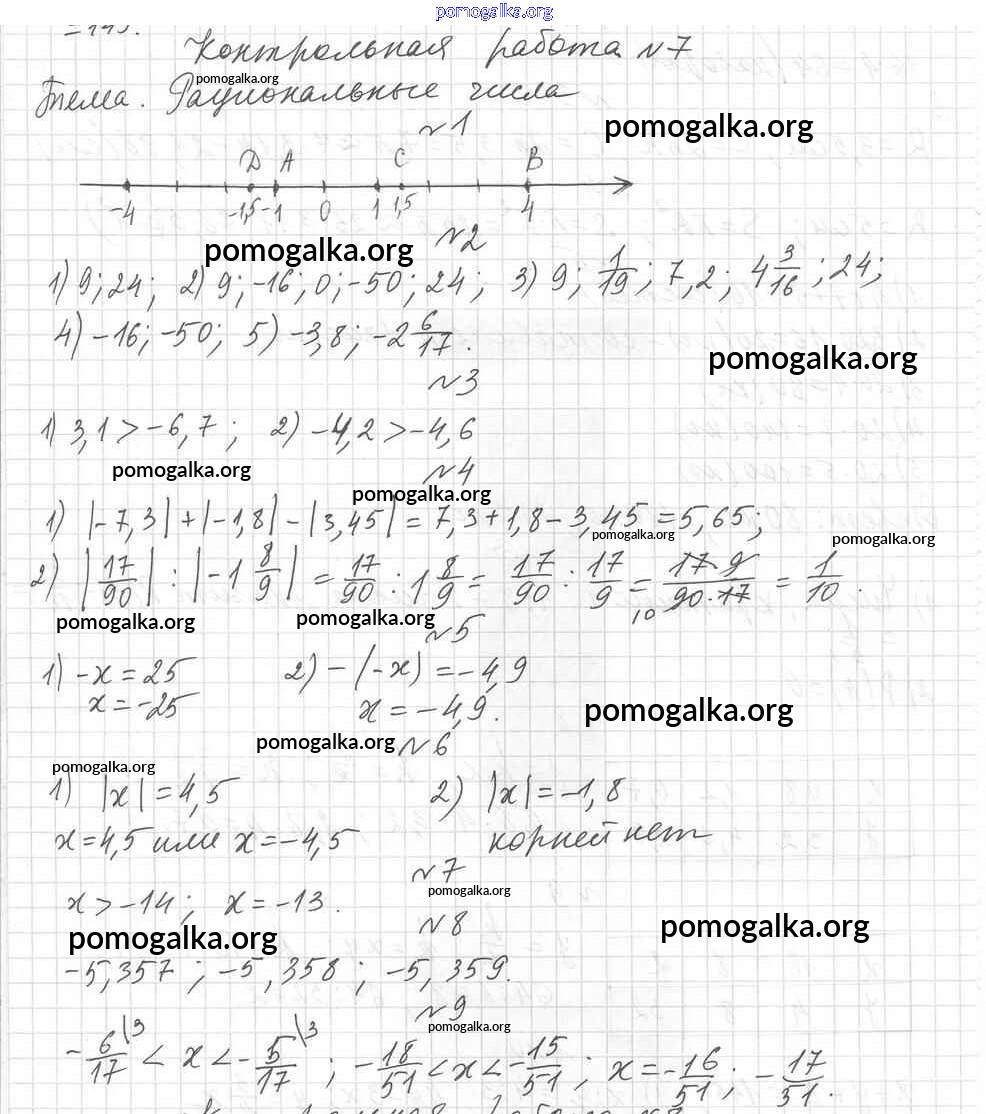 pomogalka.org
Контрольная работа №7
pomogalka.org
Тема. Рациональные числа
№1
pomogalka.org
D A C B
-4 -1,5 -1 0 1 1,5 4
pomogalka.org
№2
1) 9; 24; 2) 9; -16; 0; -50; 24; 3) 9; 1/19; 7,2; 4 3/16; 24;
4) -16; -50; 5) -3,8; -2 6/17.
pomogalka.org
№3
1) 3,1 > -6,7; 2) -4,2 > -4,6
pomogalka.org
№4
pomogalka.org
1) |-7,3| + |-1,8| - |3,45| = 7,3 + 1,8 - 3,45 = 5,65;
pomogalka.org
pomogalka.org
2) |17/90| : |-1 8/9| = 17/90 : 1 8/9 = 17/90 : 17/9 = 17·9/90·17 = 1/10.
10
pomogalka.org
pomogalka.org
№5
1) -x = 25 2) -(-x) = -4,9
x = -25 x = -4,9.
pomogalka.org
pomogalka.org
№6
pomogalka.org
1) |x| = 4,5 2) |x| = -1,8
x = 4,5 или x = -4,5 корней нет
№7
pomogalka.org
x > -14; x = -13.
№8
pomogalka.org
pomogalka.org
-5,357; -5,358; -5,359.
№9
pomogalka.org
-6/17 \3 < x < -5/17 \3; -18/51 < x < -15/51; x = -16/51; -17/51.